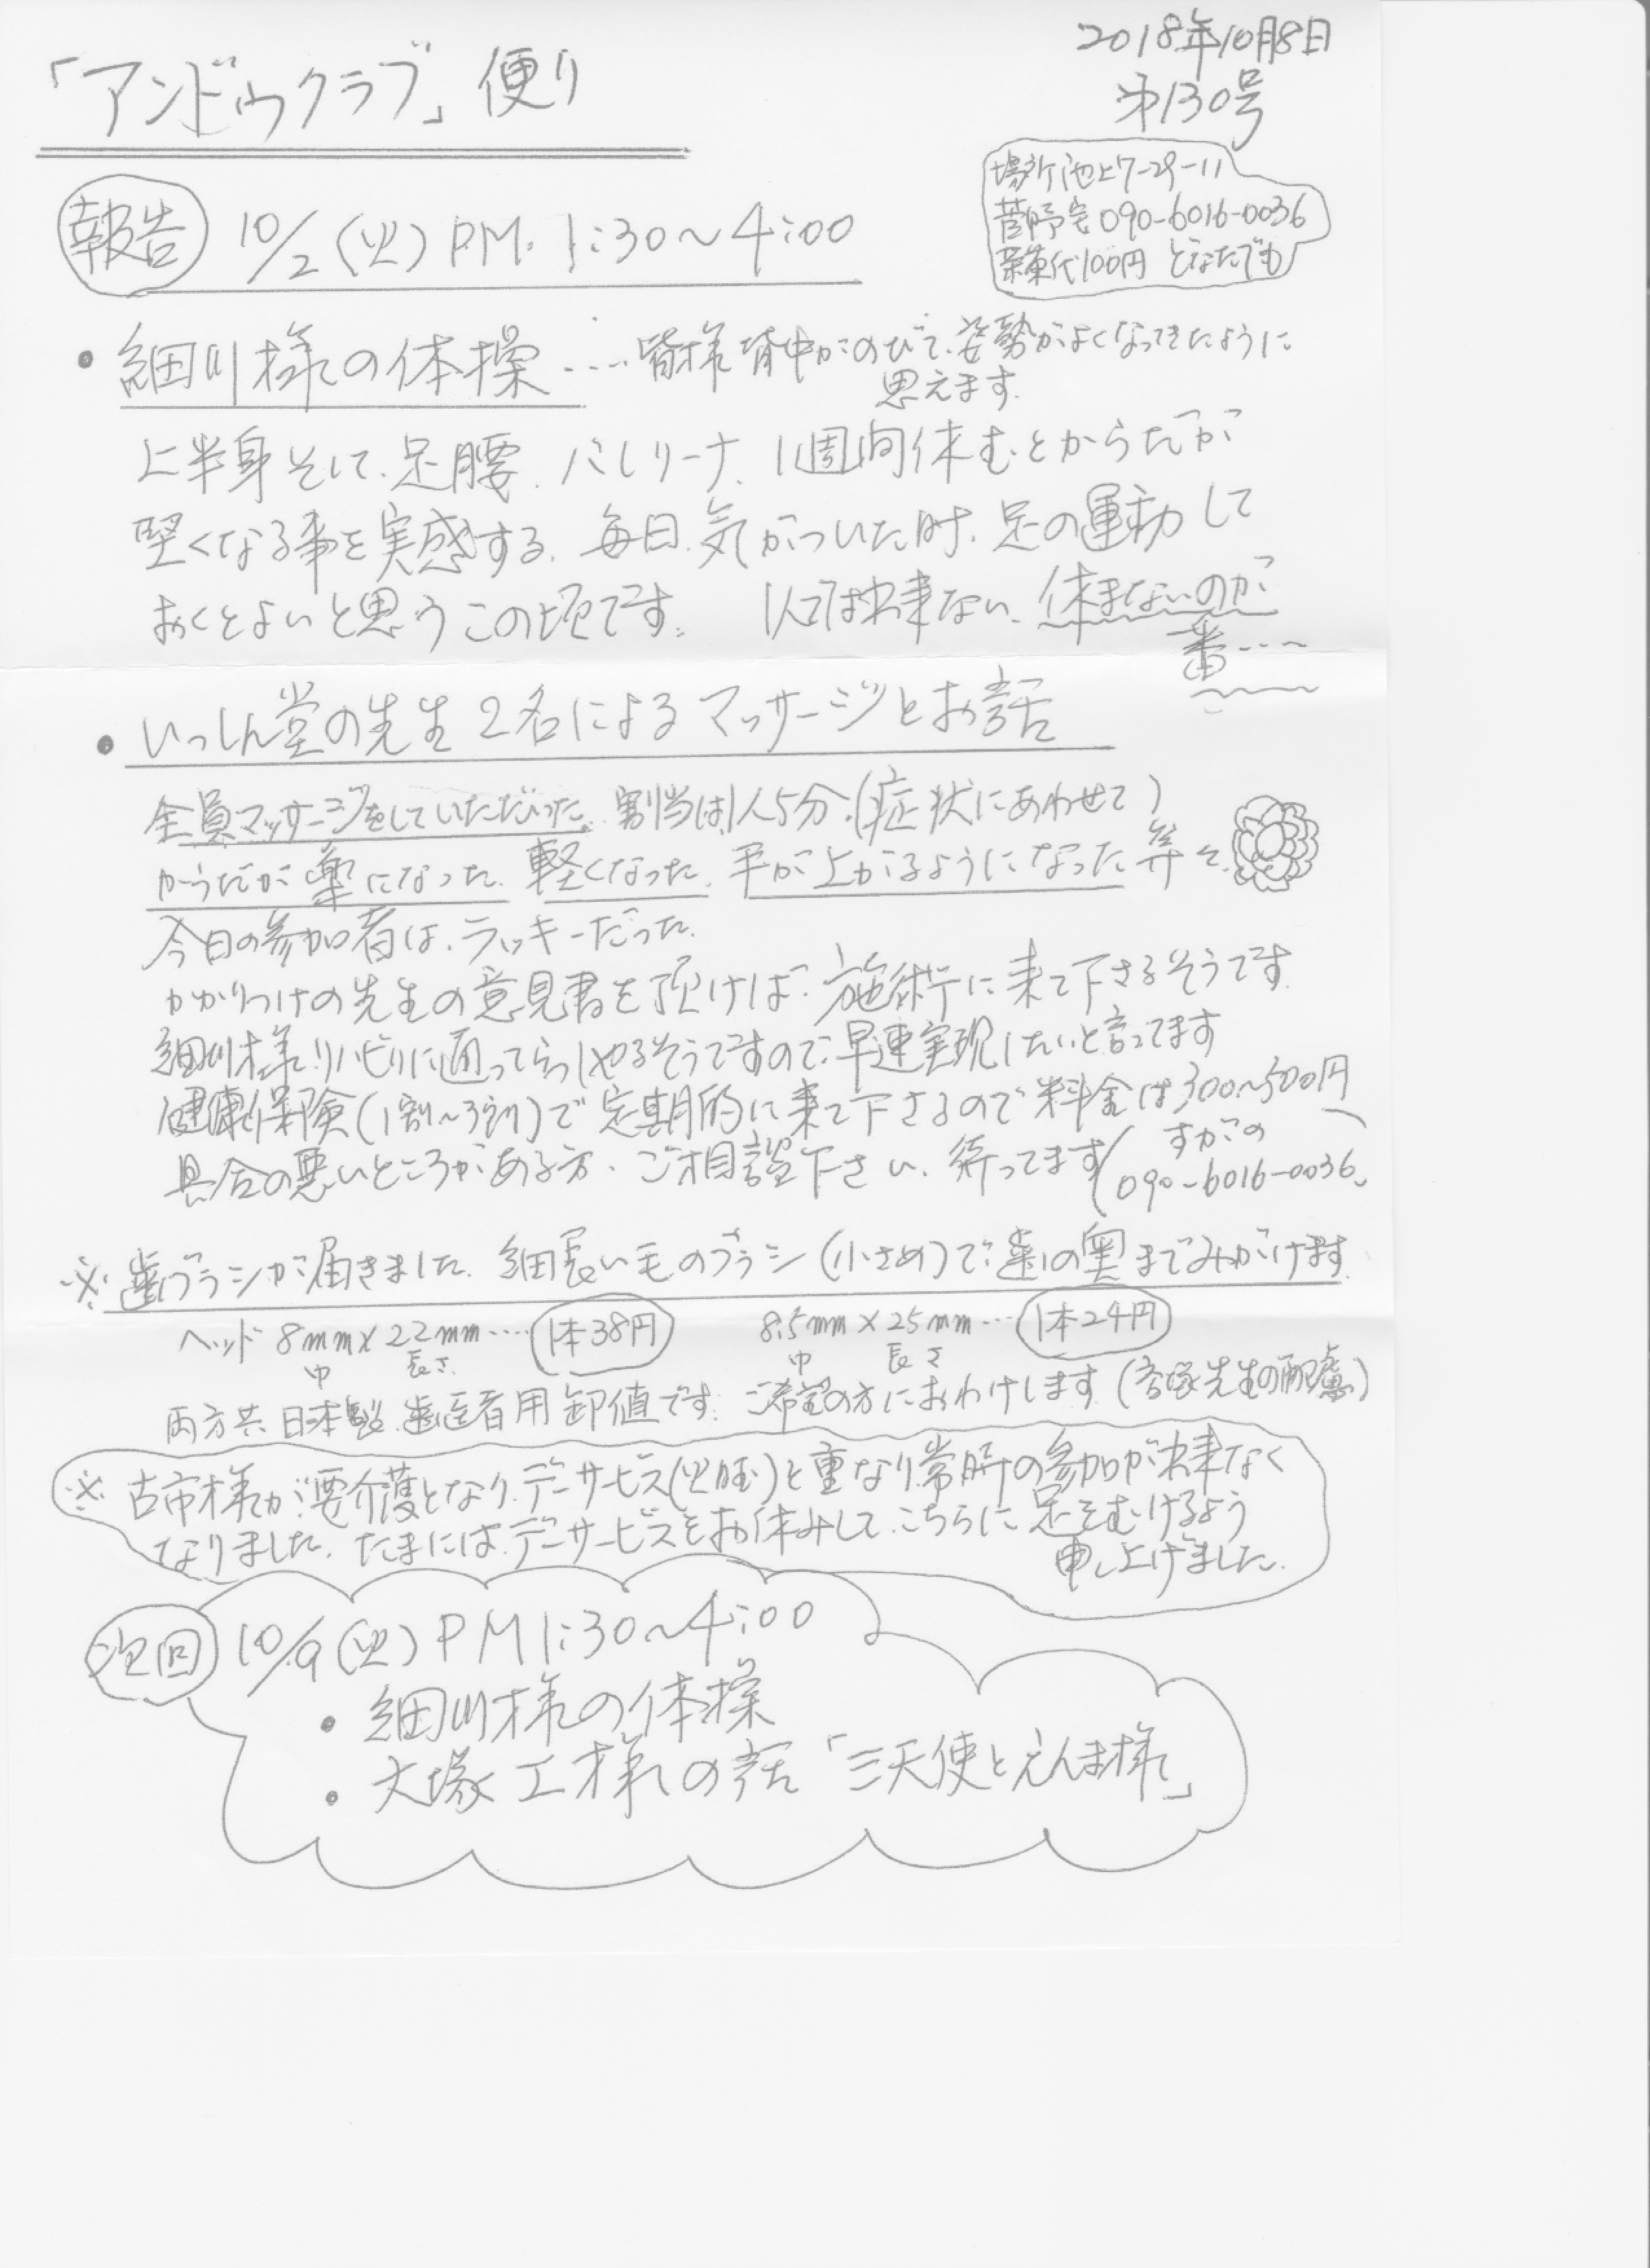 2018年10月8日
「アンドゥクラブ」便り
第130号
場所池上7-29-11
菅野宅 090-6016-0036
茶菓代100円 どなたでも
報告 10/2(火)PM. 1:30〜4:00
• 細川様の体操‥‥皆様背中がのびて、姿勢がよくなってきたように
思えます.
上半身そして、足腰. バレリーナ. 1週間休むとからだが
堅くなる事を実感する. 毎日. 気がついた時. 足の運動して
おくとよいと思うこの頃です. 1人では出来ない. 休まないのが
一番‥‥
• いっしん堂の先生2名によるマッサージとお話
全員マッサージをしていただいた. 割当は1人5分.(症状にあわせて)
からだが楽になった. 軽くなった. 手が上がるようになった等々.
今日の参加者は. ラッキーだった.
かかりつけの先生の意見書を頂ければ. 施術に来て下さるそうです.
細川様リハビリに通ってらっしゃるそうですので. 早速実現したいと言ってます
健康保険(1割〜3割)で定期的に来て下さるので料金は300〜500円
具合の悪いところがある方. ご相談下さい. 待ってます(すがの
090-6016-0036)
※ 歯ブラシが届きました. 細長い毛のブラシ(小さめ)で. 歯の奥までみがけます.
ヘッド 8mm×22mm‥‥ 1本38円 8.5mm×25mm‥‥ 1本24円
巾 長さ 巾 長さ
両方共. 日本製. 歯医者用卸値です. ご希望の方におわけします.(先生の配慮)
※ 古市様が要介護となり. デーサービス(火曜)と重なり常時の参加が出来なく
なりました. たまには. デーサービスをお休みして. こちらに足をむけるよう
申し上げました.
次回 10/9(火)PM1:30〜4:00
• 細川様の体操
• 大塚工様の話「三天使とえんま様」